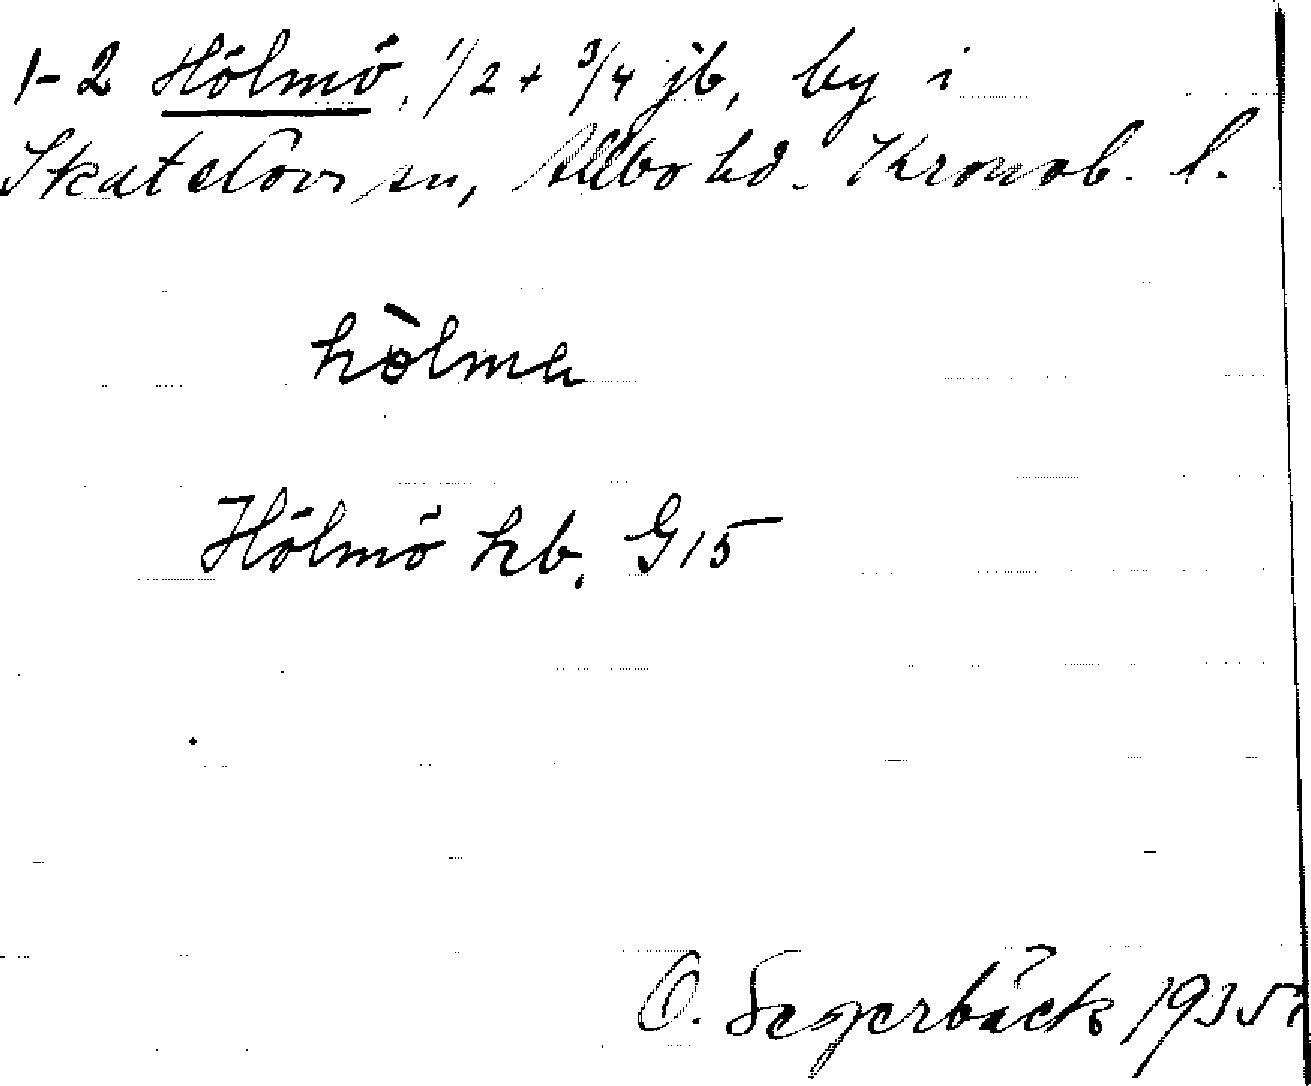 1-2 Hölmö, 1/2 + 3/4 jb, by i
Skatelövs sn, Allbo hd. Kronob. l.
hölma
Hölmö hb. G15
O. Segerbäck 1935